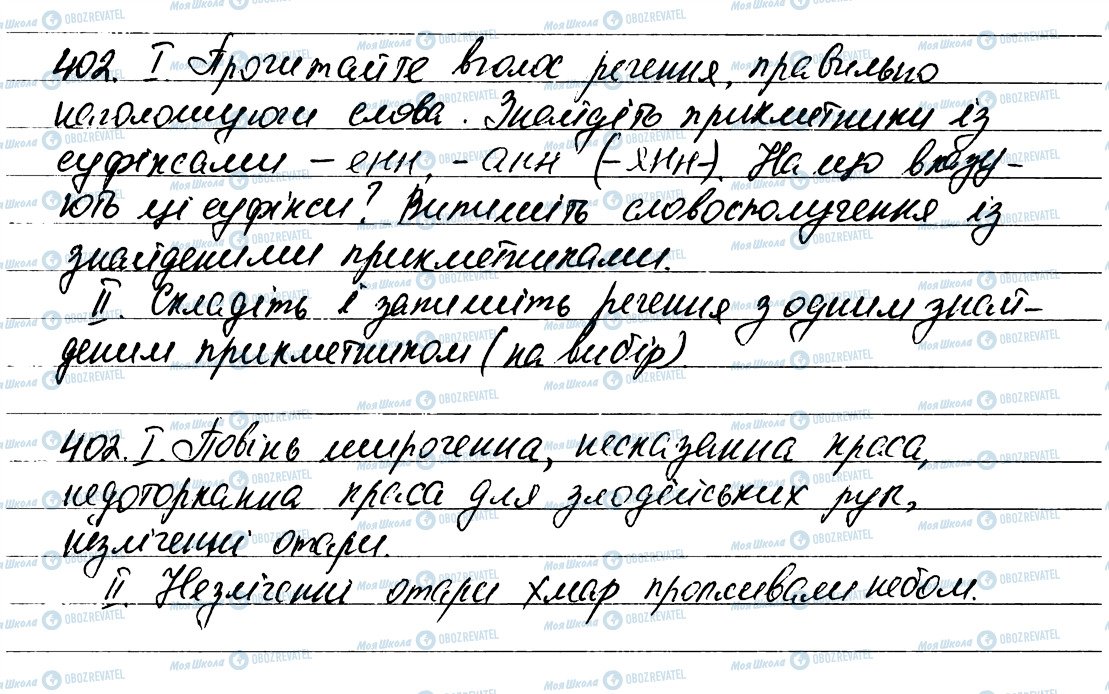 402. І. Прочитайте вголос речення, правильно
наголошуючи слова. Знайдіть прикметники із
суфіксами – енн, – анн (– янн–). На що вказу–
ють ці суфікси? Випишіть словосполучення із
знайденими прикметниками.
ІІ. Складіть і запишіть речення з одним знай–
деним прикметником (на вибір).
402. І. Повінь широченна, несказанна краса,
недоторканна краса для злодійських рук,
незліченні отари.
ІІ. Незліченні отари хмар пропливали небом.